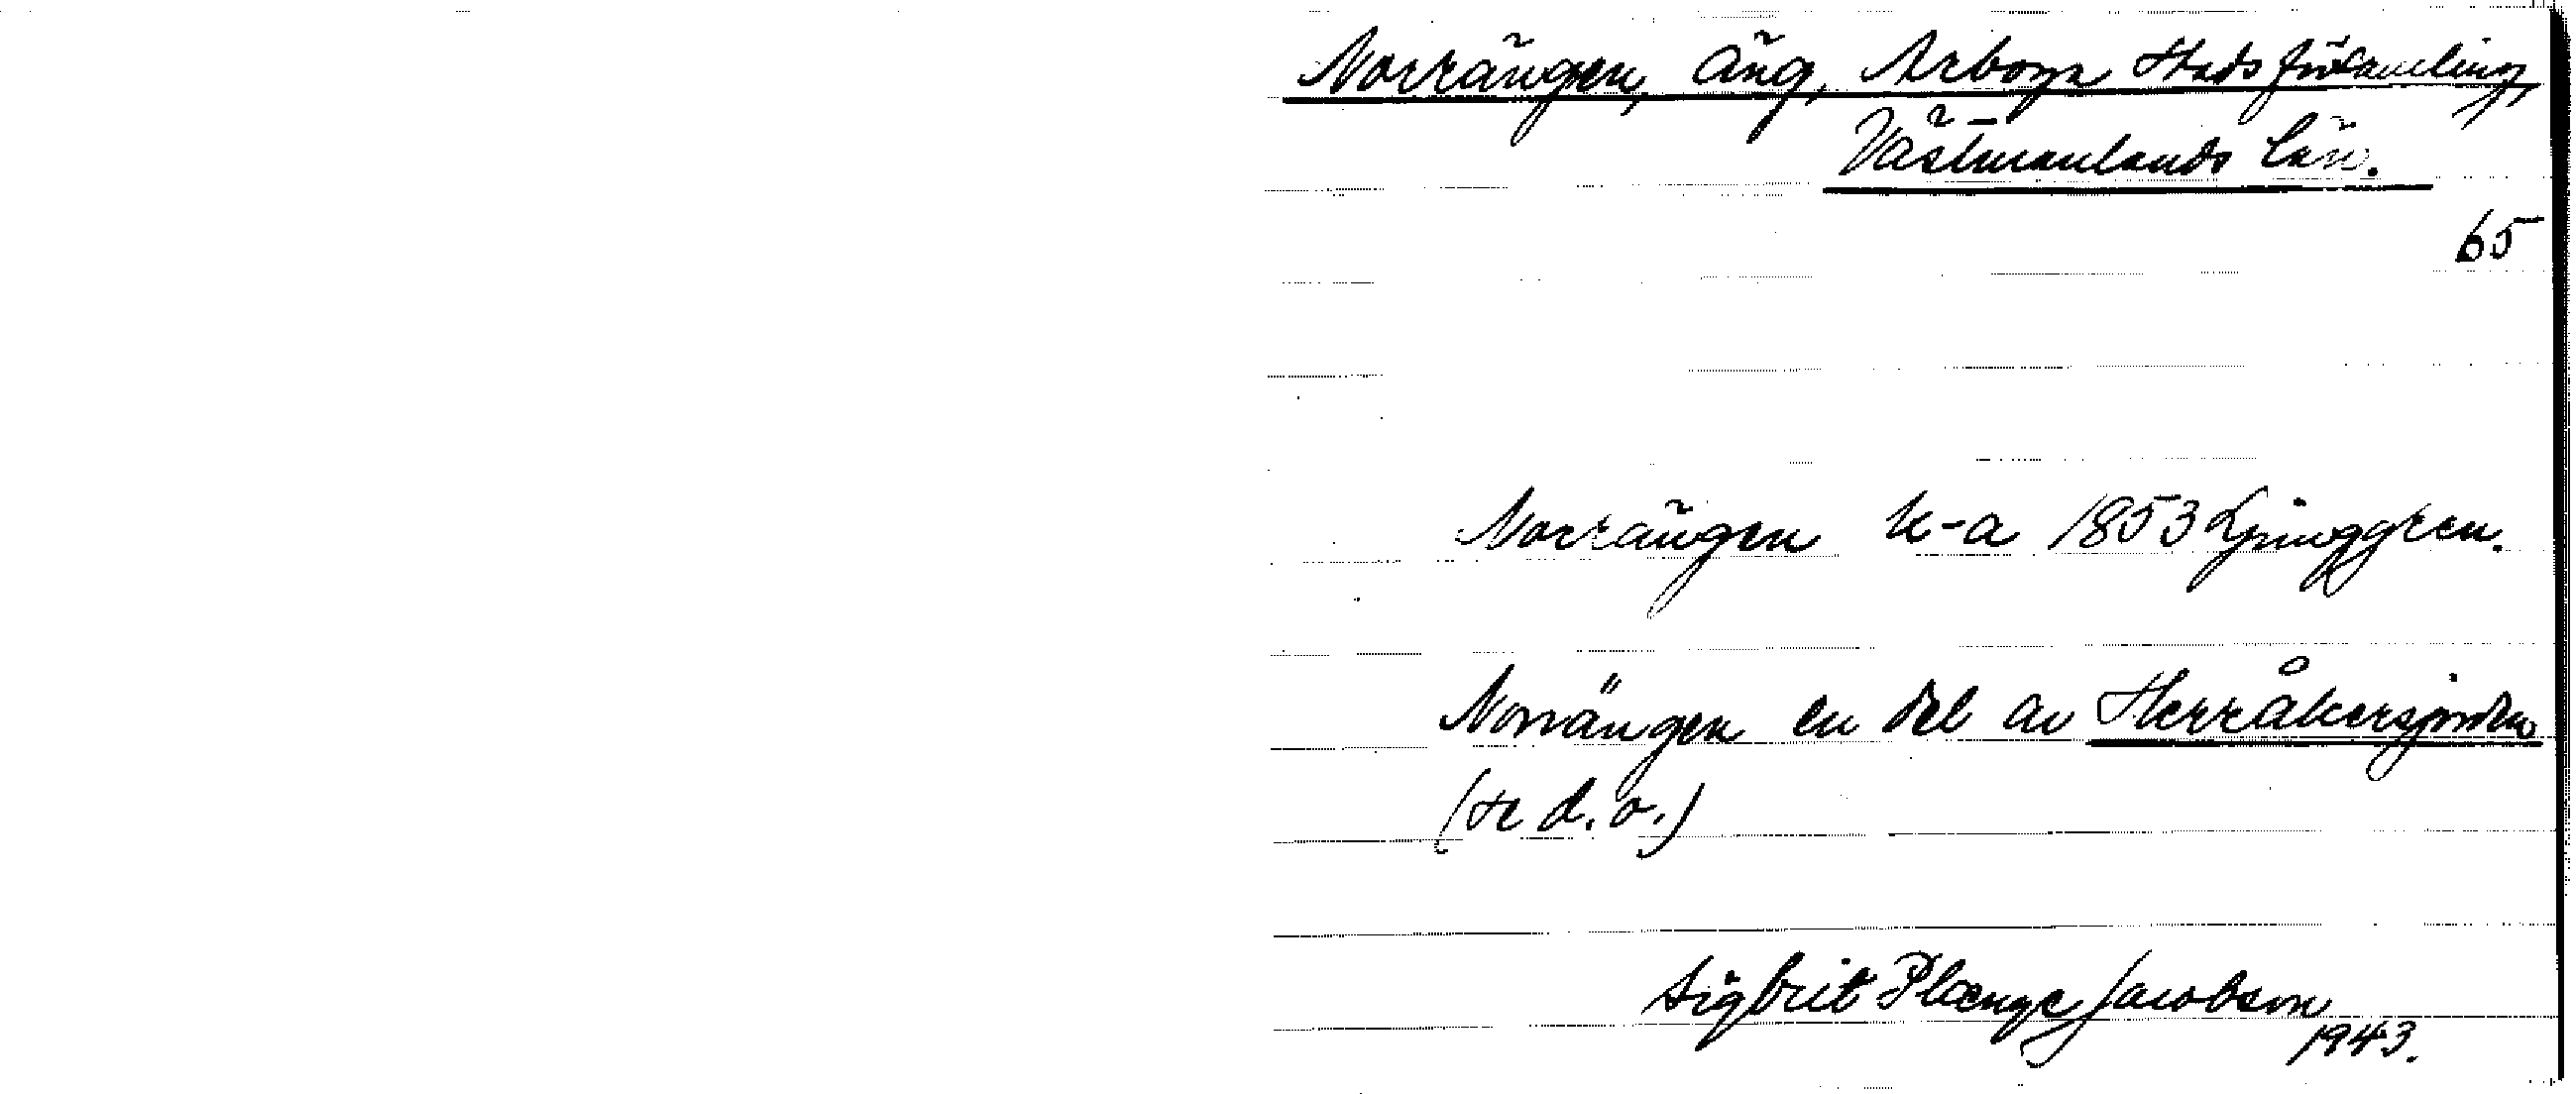 Norrängen, äng, Arboga Stadsförsamling,
Västmanlands län.
65
Norrängen k-a 1853 Ljunggren.
Norrängen en del av Herråkersjorden
(se d. o.)
Sigbrit Plænge Jacobson
1943.